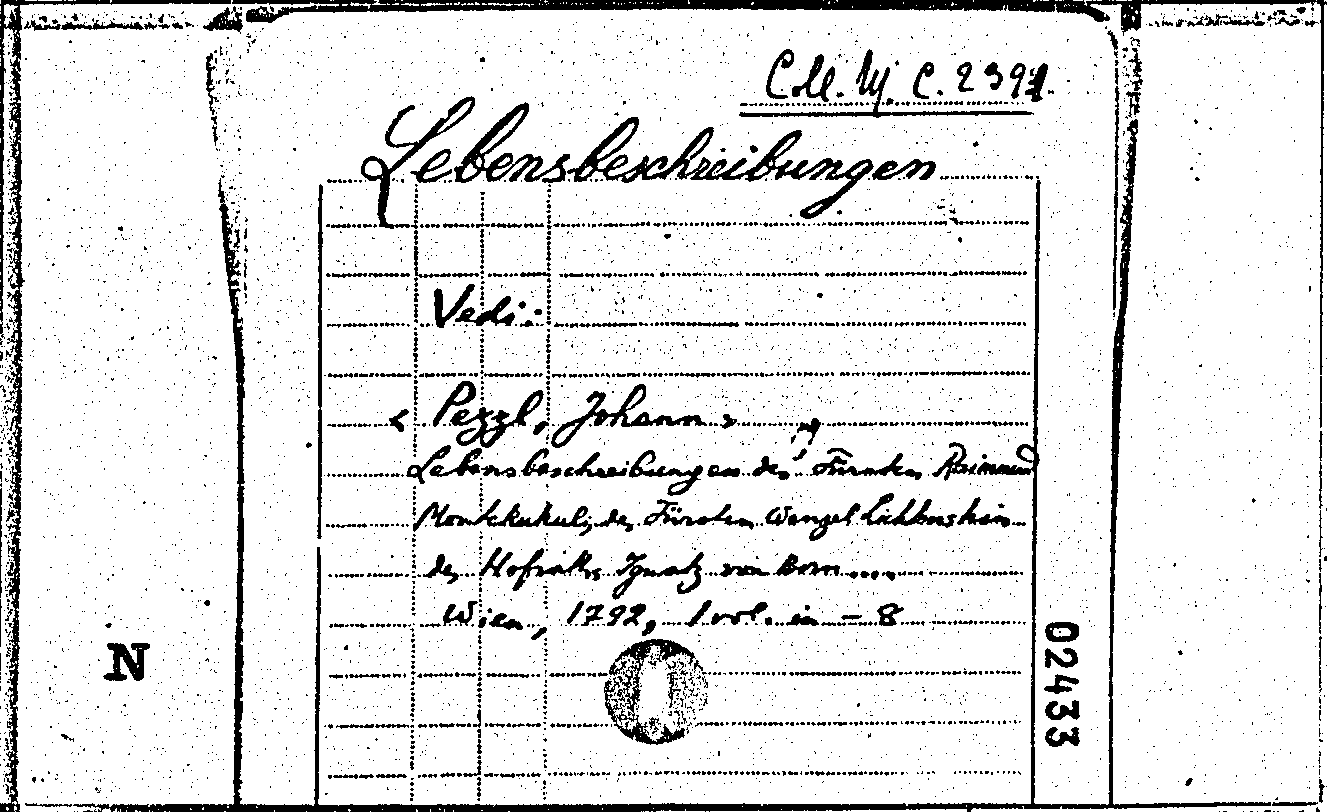 Coll. W. C. 2391.
Lebensbeschreibungen
Vedi:
< Pezzl, Johann >
Lebensbeschreibungen des Fürsten Raimund
Montekukuli, des Fürsten Wenzel Lichtenstein
des Hofraths Ignatz von Born ....
Wien, 1792, 1 vol. in - 8
N
02433